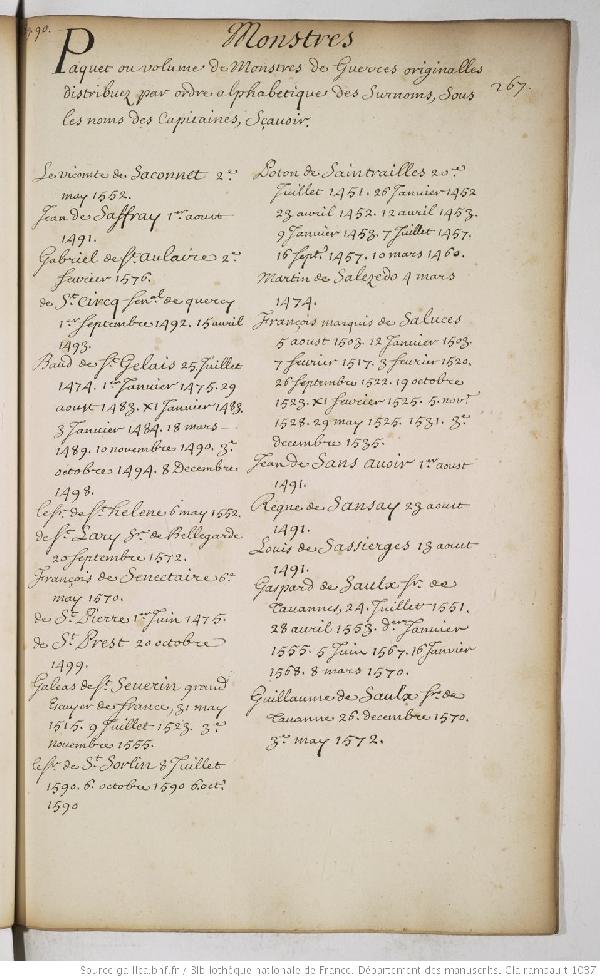 Monstres
Paquet ou volume de Monstres de Guerres originalles
distribuez par ordre alphabetique des Surnoms, Sous
les noms des Capitaines, Sçavoir.
267.
Le vicomte de Saconnet 2.e
may 1552.
Jean de Saffray 1.er aoust
1491.
Gabriel de S.t aulaire 2.e
fevrier 1576.
de S.t Circq sen.al de quercy
1.er septembre 1492. 15 avril
1493.
Baud de S.t Gelais 25 Juillet
1474. 1.er Janvier 1475. 29
aoust 1483. XI Janvier 1483.
3 Janvier 1484. 18 mars
1489. 10 novembre 1490. 3.e
octobre 1494. 8 Decembre
1498.
le s.r de S.te helene 6 may 1552.
de S.t Lary s.r de Bellegarde
20 septembre 1572.
François de Senectaire 6.e
may 1570.
de S.t Pierre 1.er Juin 1475.
de S.t Prest 20 octobre
1499.
Galeas de S.t Severin grand
Escuyer de france, 31 may
1515. 9 Juillet 1523. 3.e
novembre 1555.
le s.r de S.t Sorlin 8 Juillet
1590. 6. octobre 1590 6 oct.e
1590
Poton de Saintrailles 20.e
Juillet 1451. 26 Janvier 1452
23 avril 1452. 12 avril 1453.
9 Janvier 1453. 7 Juillet 1457.
16 sept.e 1457. 10 mars 1460.
Martin de Salezedo 4 mars
1474.
François marquis de Saluces
5 aoust 1503. 12 Janvier 1503.
7 fevrier 1517. 3 fevrier 1520.
26 septembre 1522. 19 octobre
1523. XI fevrier 1525. 5. nov.e
1528. 29 may 1525. 1531. 3.e
decembre 1535.
Jean de Sans avoir 1.er aoust
1491.
Regne de Sansay 23 aoust
1491.
Louis de Sassierges 13 aoust
1491.
Gaspard de Saulx s.r de
Tavannes, 24. Juillet 1551.
28 avril 1553. d.er Janvier
1555. 5 Juin 1567. 16 Janvier
1568. 8 mars 1570.
Guillaume de Saulx s.r de
Tavanne 26. decembre 1570.
3.e may 1572.
Source gallica.bnf.fr / Bibliothèque nationale de France. Département des manuscrits. Clairambault 1037